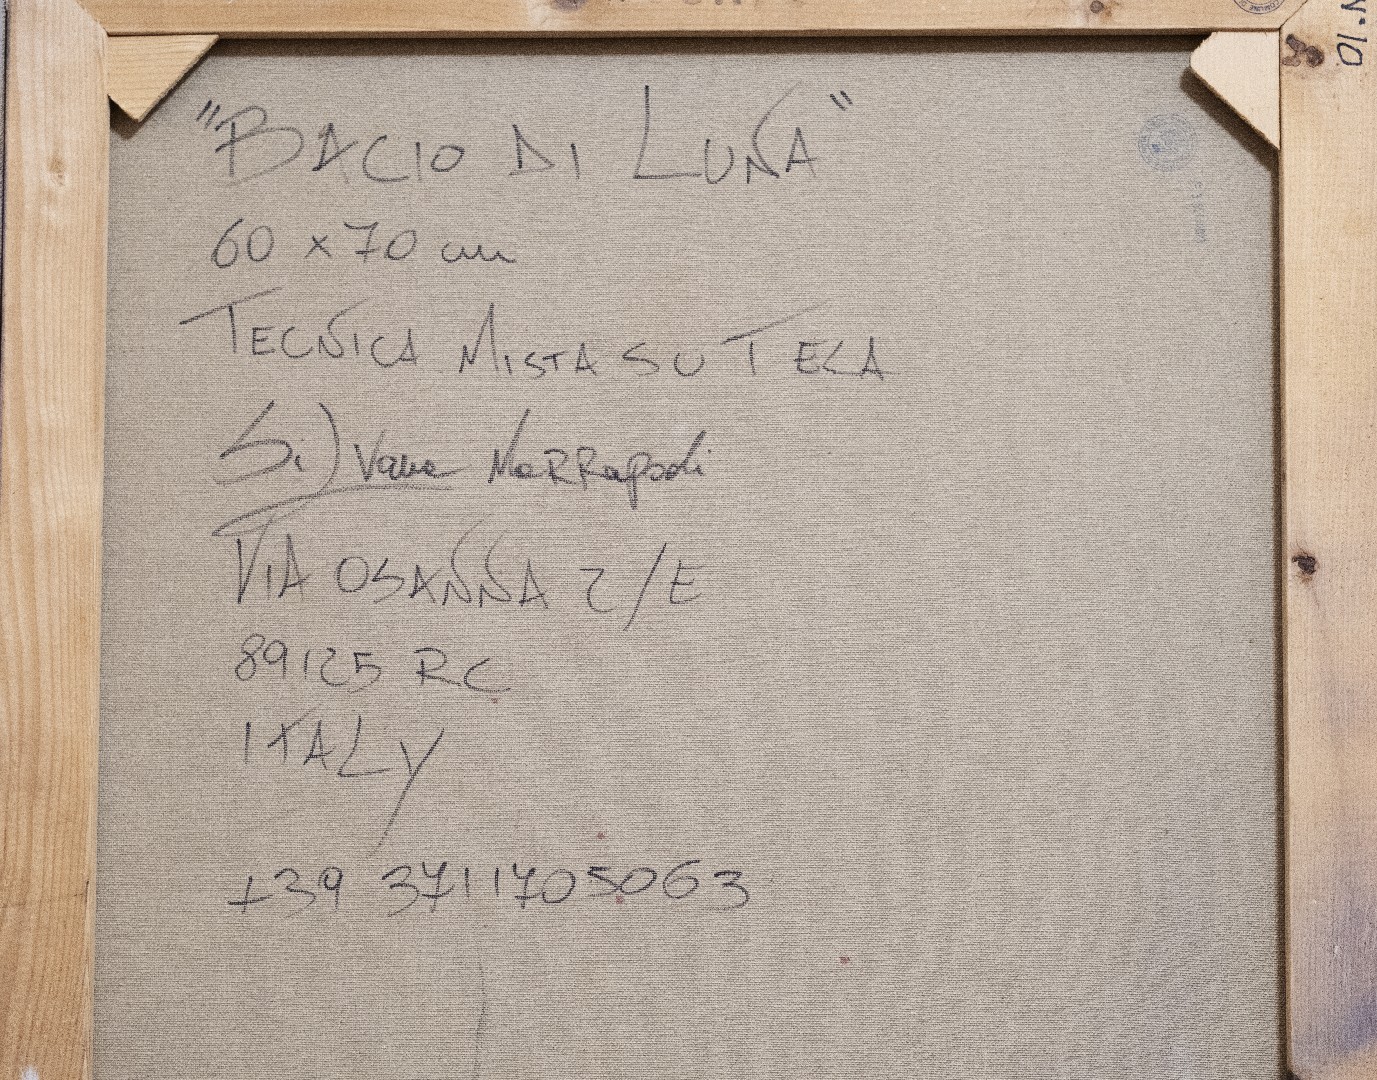 "BACIO DI LUNA"
60 x 70 cm
TECNICA MISTA SU TELA
Silvana Marrapodi
VIA OSANNA 2/E
89125 RC
ITALY
+39 3711705063
N°10